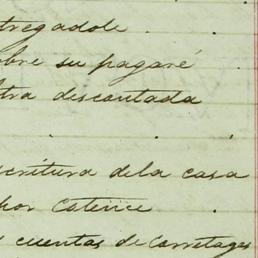 tregadole
bre su pagaré
tra descontada
critura dela casa
por Caterice
cuentas de Carretages